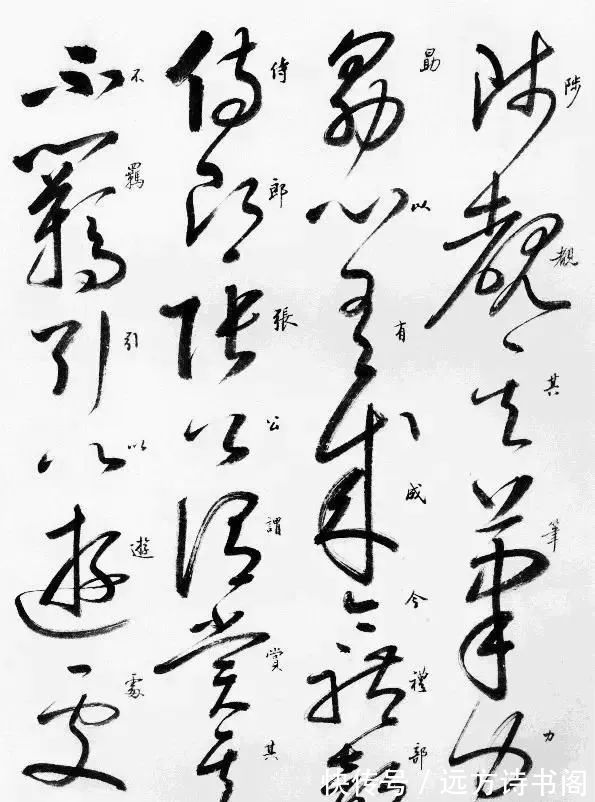 陟覩其筆力
勗以有成今禮部
侍郎張公謂賞其
不羈引以遊處
快传号 / 远方诗书阁